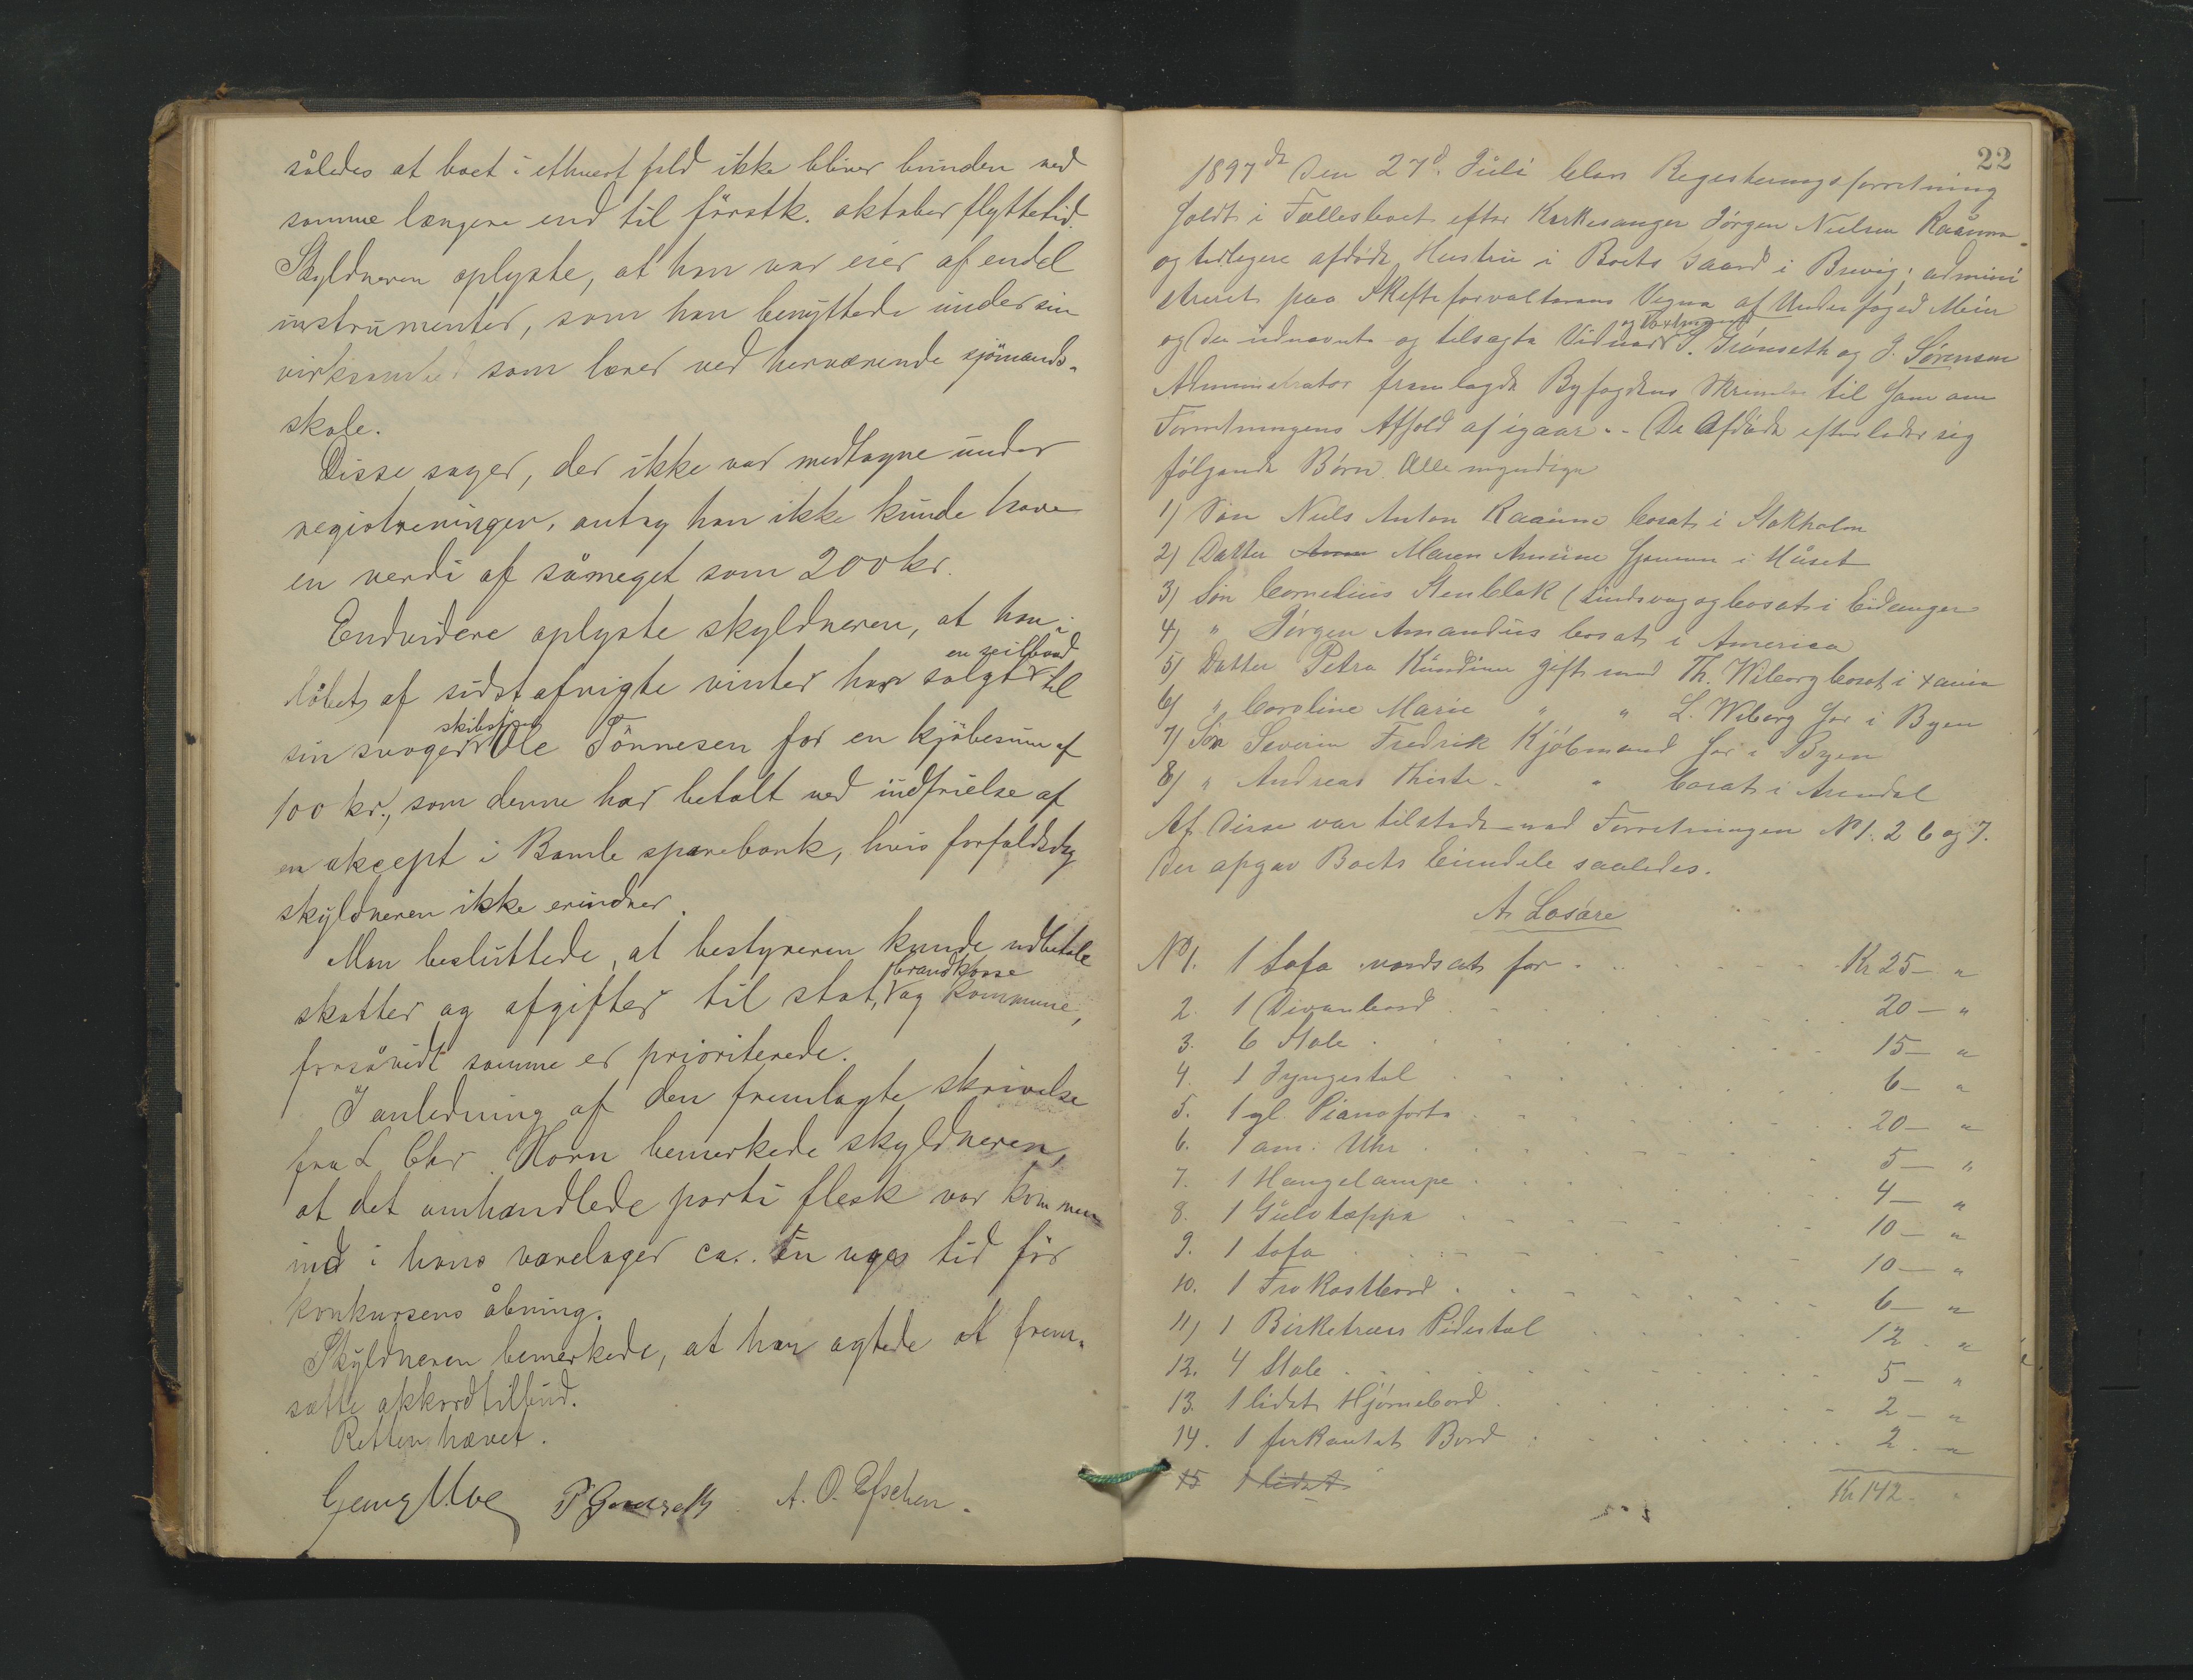 således at boet i ethvert fald ikke bliver bunden ved
samme længere end til førstk. oktober flyttetid.
Skyldneren oplyste, at han var eier af endel
instrumenter, som han benyttede under sin
virksomhed som lærer ved herværende sjömands-
skole.
Disse sager, der ikke var medtagne under
registreringen, antog han ikke kunde have
en verdi af såmeget som 200 kr.
Endvidere oplyste skyldneren, at han i
en seilbaad
löbet af sidstafvigte vinter har solgt til
skibsfører
sin svoger Ole Tönnesen for en kjöbesum af
100 kr., som denne har betalt ved indfrielse af
en aksept i Bamle sparebank, hvis forfaldsdag
skyldneren ikke erindrer.
Man besluttede, at bestyreren kunde udbetale
brandkasse
skatter og afgifter til stat, og kommune,
forsåvidt samme er prioriterede.
I anledning af den fremlagte skrivelse
fra L. Chr. Horn bemerkede skyldneren,
at det omhandlede parti flesk var kommen
ind i hans varelager ca. en uges tid för
konkursens åbning.
Skyldneren bemerkede, at han agtede at frem-
sætte akkordtilbud.
Retten hævet.
A. O.
22
1897 den 27d. Juli blev Registreringsforretning
holdt i Fællesboet efter Kirkesanger Jørgen Nielsen Raaum
og tidligere afdøde Hustru i Boets Gaard i Brevig; admini
streret paa Skifteforvalterens Vegne af Underfoged Meier
og de udnævnte og tilsagte Vidner og J. Sørensen
Administrator fremlagde Byfogdens Skrivelse til ham om
Forretningens Afhold af igaar. - De Afdøde efterlader sig
følgende Børn Alle myndige
1) Søn Niels Anton Raaum bosat i Stokholm
2) Datter Maren Amine hjemme i Huset
3) Søn Cornelius Stenblok (Sindsvag og bosat i Eidanger
4) " Jørgen Amandus bosat i America
5) Datter Petra Kundine gift med Th. Wiborg bosat i Xania
6) " Caroline Marie " " L. Wiborg her i Byen
7) Søn Severin Fredrik Kjøbmand her i Byen
8) " Andreas " bosat i Arendal
Af disse var tilstede ved Forretningen No 1. 2 6 og 7.
Der opgav Boets Eiendele saaledes.
A. Løsøre
No 1. 1 Sofa værdsat for Kr 25 - "
2. 1 Divanbord 20 - "
3. 6 Stole 15 - "
4. 1 Gyngestol 6 - "
5. 1 gl. Pianoforte 20 - "
6. 1 am. Uhr 5 - "
7. 1 Hængelampe 4 - "
8. 1 Gulvtæppe 10 - "
9. 1 Sofa 10 - "
10. 1 Frokostbord 6 - "
11) 1 Birketræes Pidestal 12 - "
12. 4 Stole 5 - "
13. 1 lidet Hjørnebord 2 - "
14. 1 firkantet Bord 2 - "
15 1 lidet
Kr 142 -